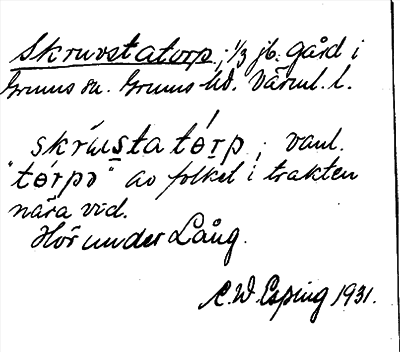 Skruvstatorp, 1/3 jb. gård i
Grums sn. Grums hd. Värml. l.
skrúusta tórp, vanl.
"tórpə" av folket i trakten
nära vid.
Hör under Lång.
C.W. Esping 1931.